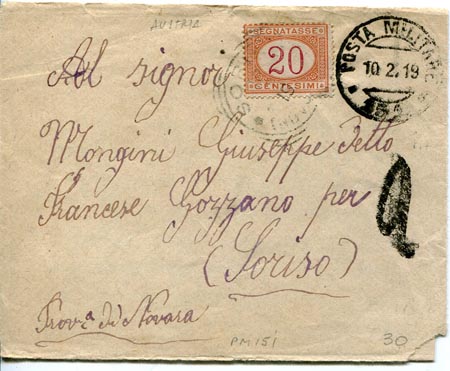 AUSTRIA
SEGNATASSE
20
CENTESIMI
POSTA MILITARE
10.2.19
151
Al signor
Mongini Giuseppe Petto
Francese Gozzano per
(Soriso)
Prov.ª di Novara
PM151
30